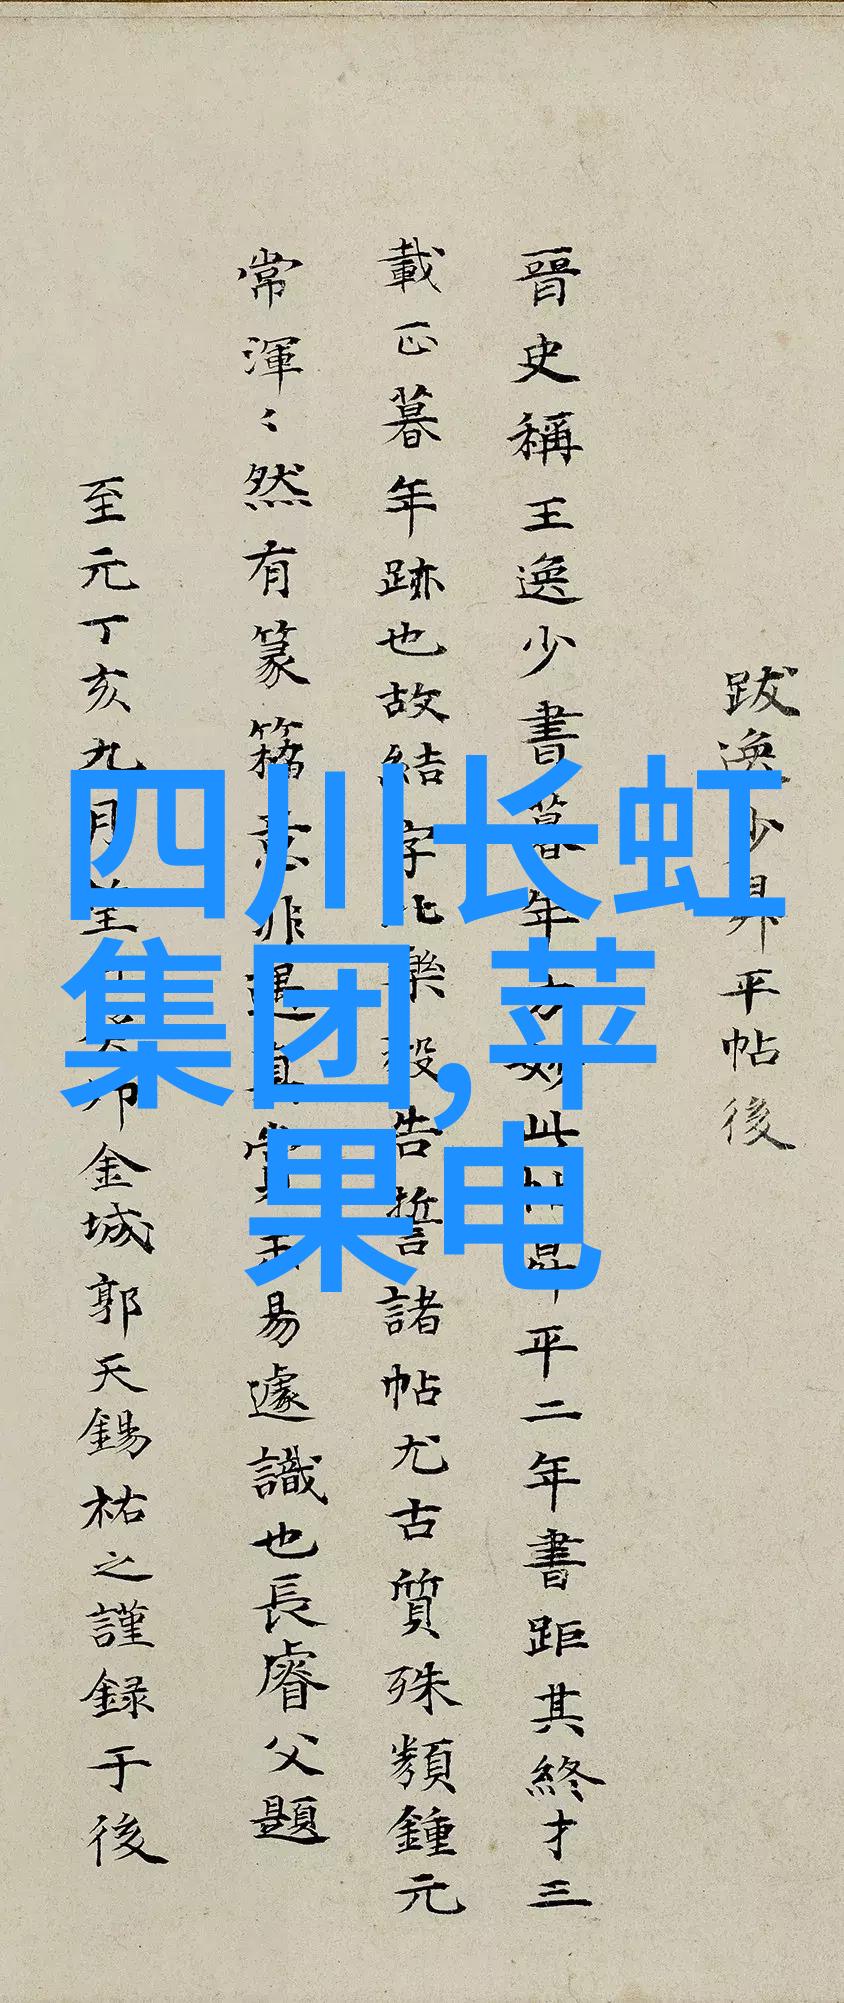 跋逸少昇平帖後
晉史稱王逸少書暮年方妙此帖昇平二年書距其終才三
載正暮年跡也故結字比樂毅告誓諸帖尤古質殊類鍾元
常渾〻然有篆籀意非遇真賞未易遽識也長睿父題
至元丁亥九月金城郭天錫祐之謹録于後
四川长虹
集团,苹
果电